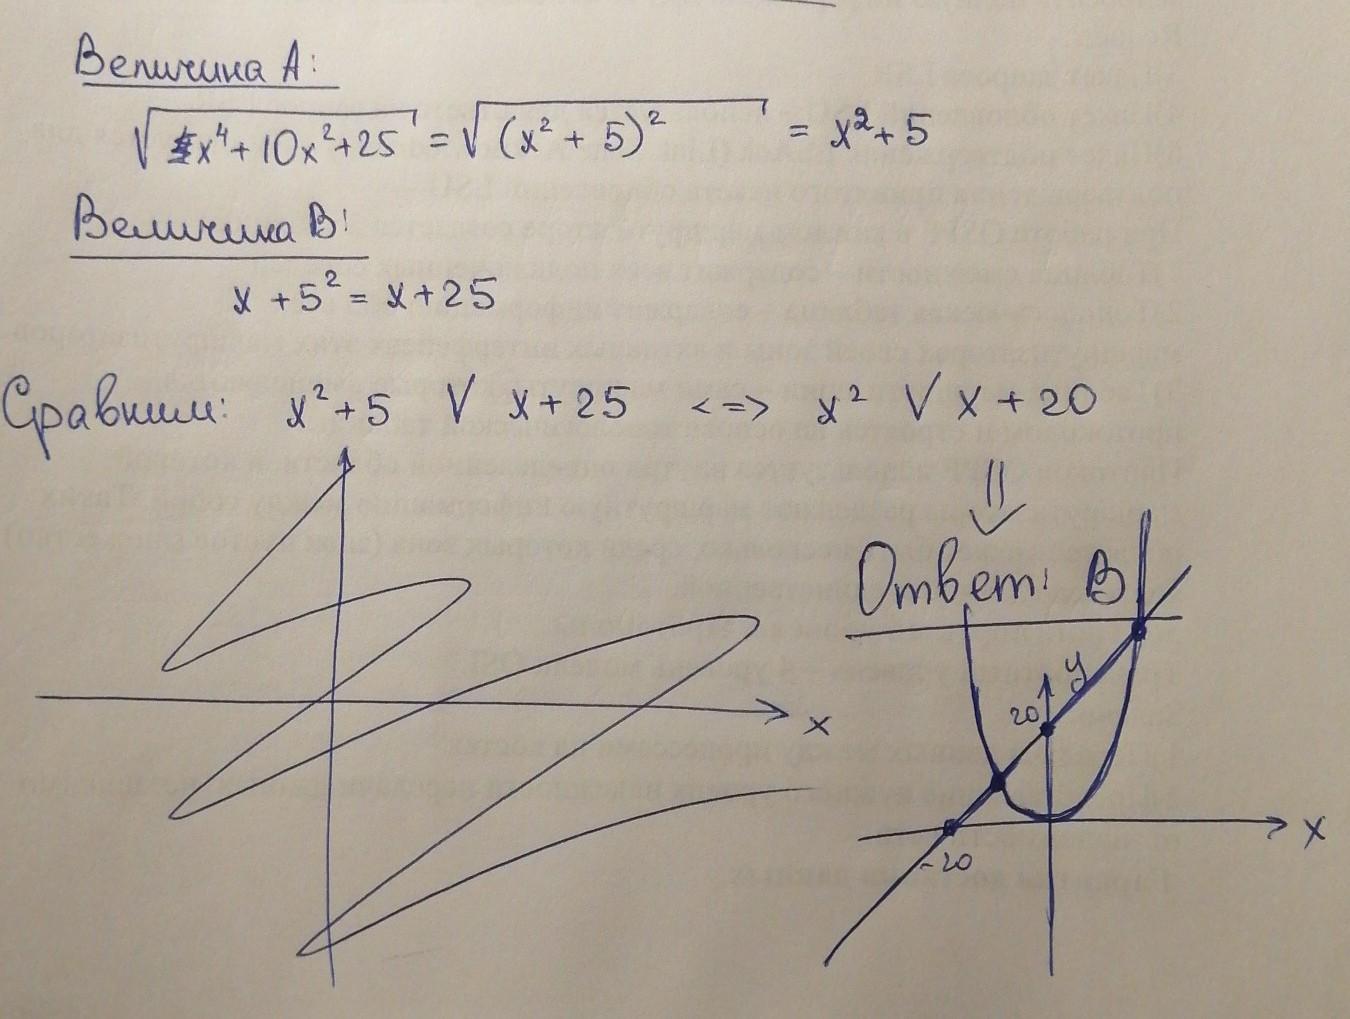 Величина A:
√x⁴+10x²+25 = √(x² + 5)² = x²+5
Величина B:
x +5² = x+25
Сравним: x²+5 V x+25 <=> x² V x+20
Ответ: B
y
20
x
x
-20